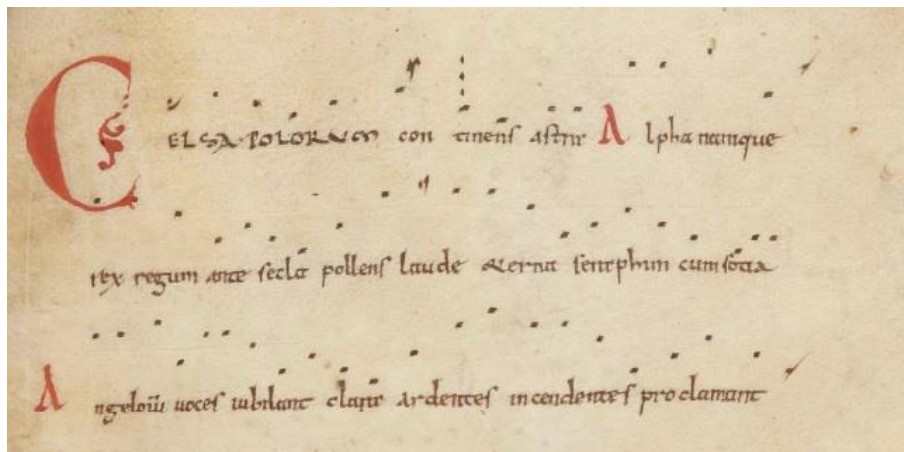 CELSA POLORUM con tinens astra Alpha namque
rex regum ante secla pollens laude &erna seraphim cum socia
Angeloru uoces iubilant clara ardentes incendentes proclamant